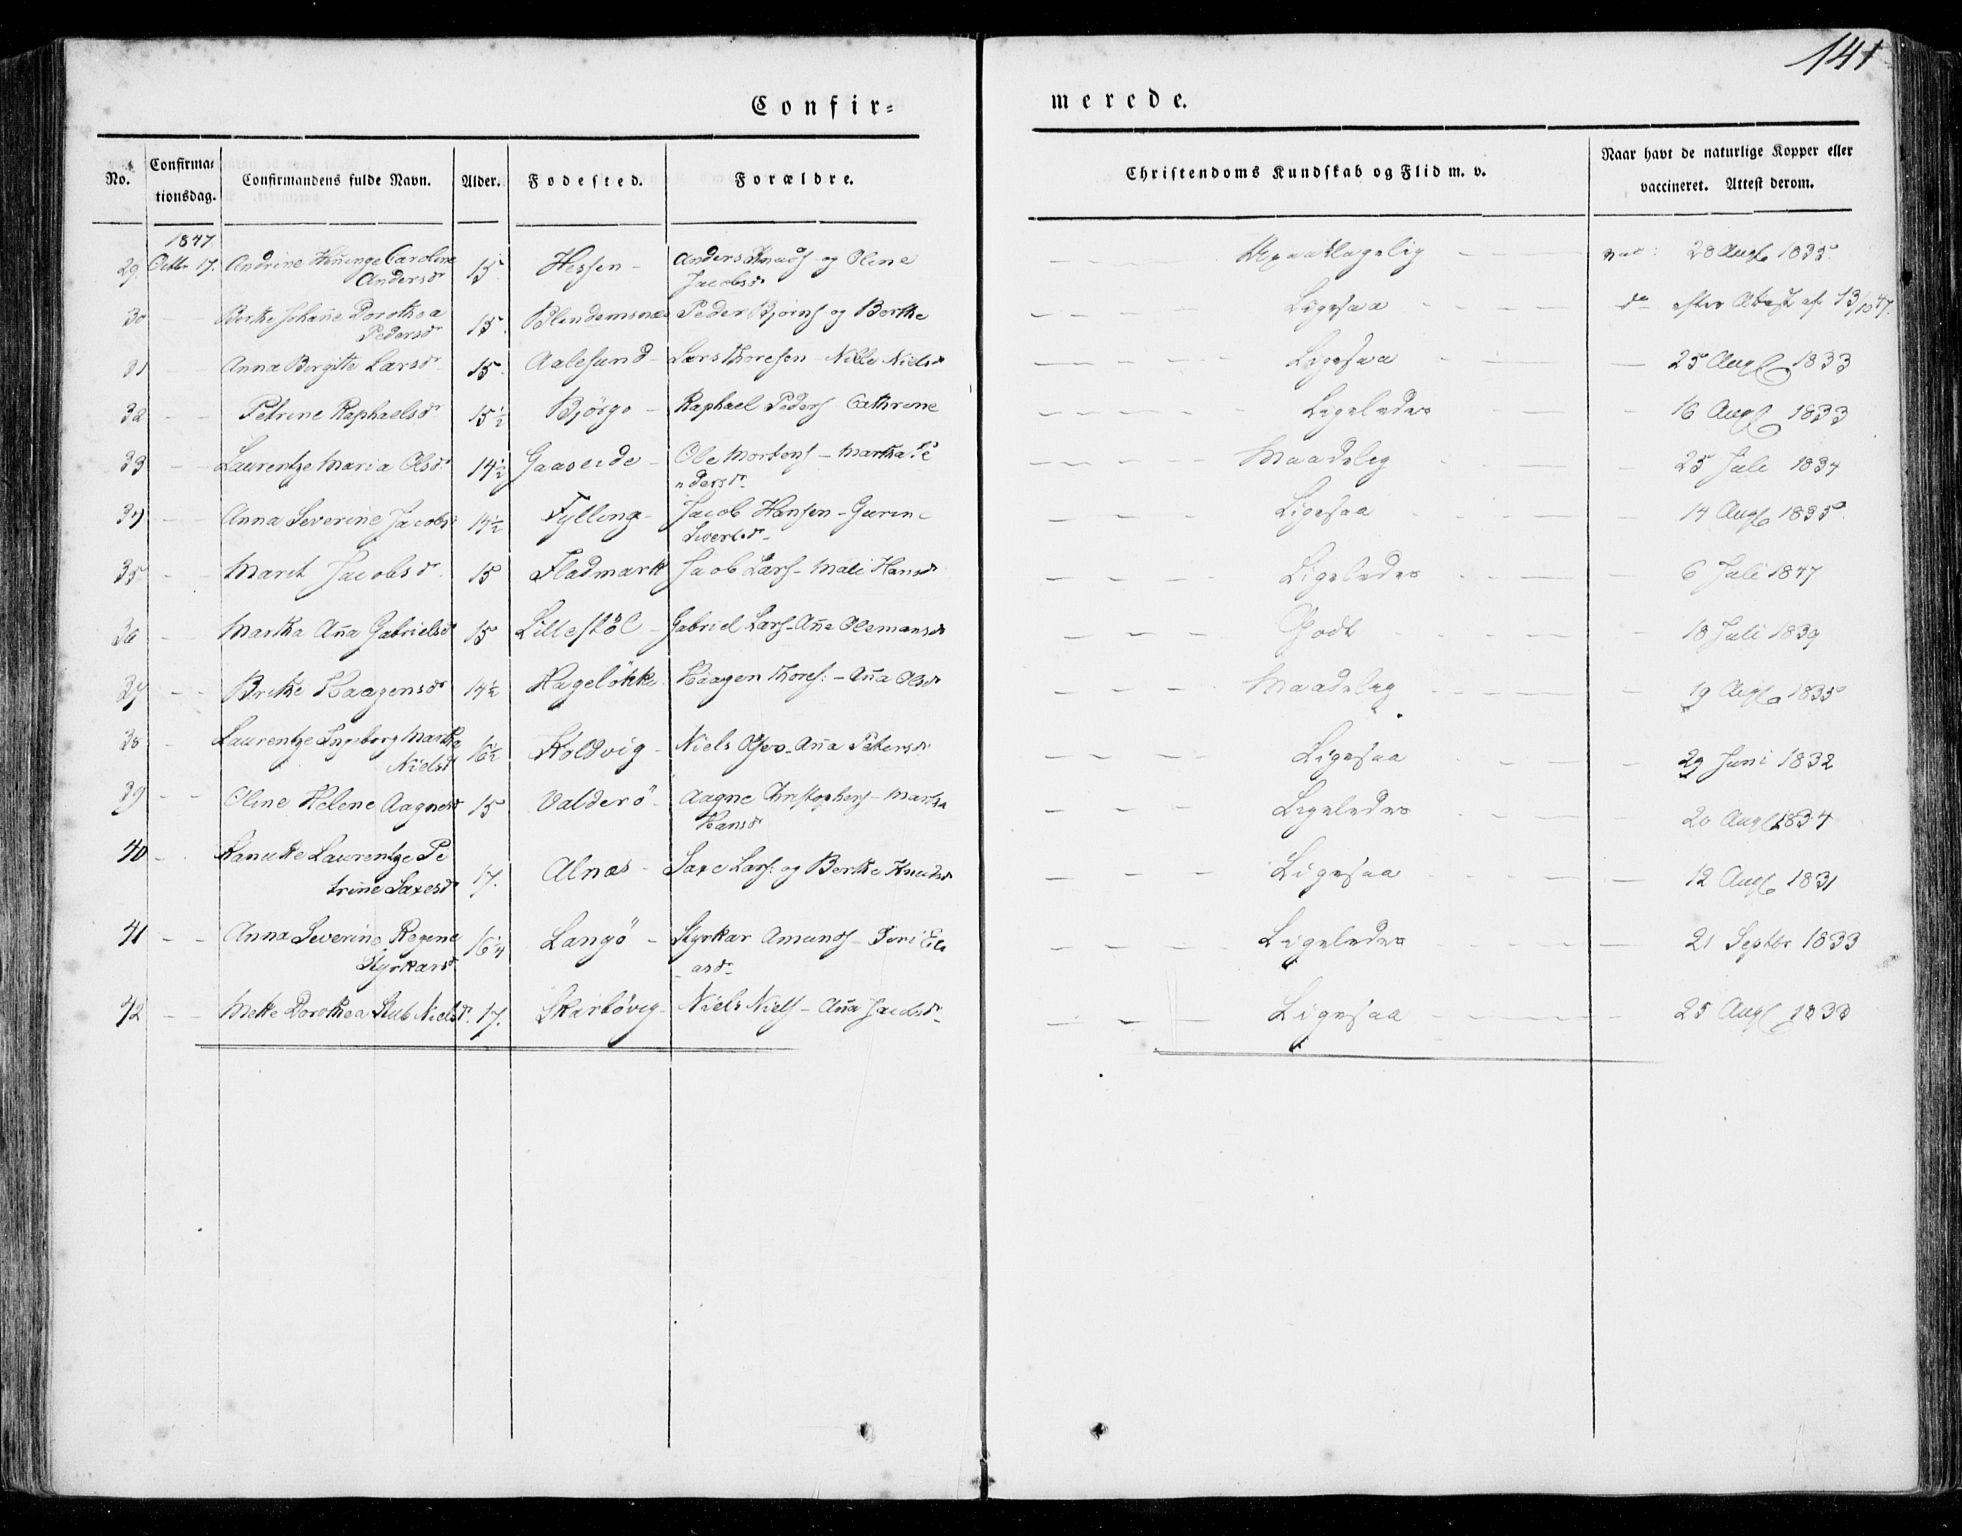 141
Confir-
merede.
No. Confirma-tionsdag. Confirmandens fulde Navn. Alder. Fødested. Forældre. Christendoms Kundskab og Flid m. v. Naar havt de naturlige Kopper eller vaccineret. Attest derom.
1847
29. Octbr 17. Andrine Caroline Andersd 15 Hessen - Anders Knuds og Oline Jacobsd vac: 28 Augs 1835
30 Berthe Johañe Dorothea Pedersd 15. Blindemsnæs Peder Bjørns og Berthe Ligesaa do efter Attest af 13/10 47.
31 Anna Birgitte Larsd 15. Aalesund - Lars Thoresen - Nille Nielsd Ligesaa 25 Augs 1833
32 Petrine Raphaelsd 15½ Bjørge - Raphael Peders Cathrine Ligeledes 16 Augs 1833
33 Laurentze Maria Olsd 14½ Gaaseide - Ole Mortens - Martha Pedersd Maadelig 25 Juli 1834
34 Anna Severine Jacobs 14½ Fylling - Jacob Hansen - Guren Sivertsd Ligesaa 14 Augs 1835
35 Marit Jacobsd. 15 Fladmark Jacob Lars - Mali Hansd Ligeledes 6 Juli 1847
36 Martha Aña Gabrielsd 15 Lillestöl - Gabriel Lars - Añe Olemansd Godt 18 Juli 1839
37 Brithe Haagensd 14½ Hagelökke Haagen Thores: - Aña Olsd Maadelig 19 Augs 1835
38 Laurentze Ingeborg Martha Nielsd 16½ Koldvig - Niels - Aña Petersd Ligesaa 29 Juni 1832
39 Oline Helene Aagnesd 15 Valderö - Aagne Christophers - Martha Hansd Ligeledes 20 Augs 1834
40 Hanukke Laurentze Petrine Saxesd 17. Alnæs - Saxe Lars: og Berthe Knudsd Ligesaa 12 Augs 1831
41 Anna Severine Regine Styrkarsd 16¼ Langö - Styrkar Amunds - Eliasd Ligeledes 21 Septbr 1833
42 Mette Dorothea Stub Nielsd. 17. Skarbövig - Niels Niels - Aña Jacobsd Ligesaa 25 Augs 1833